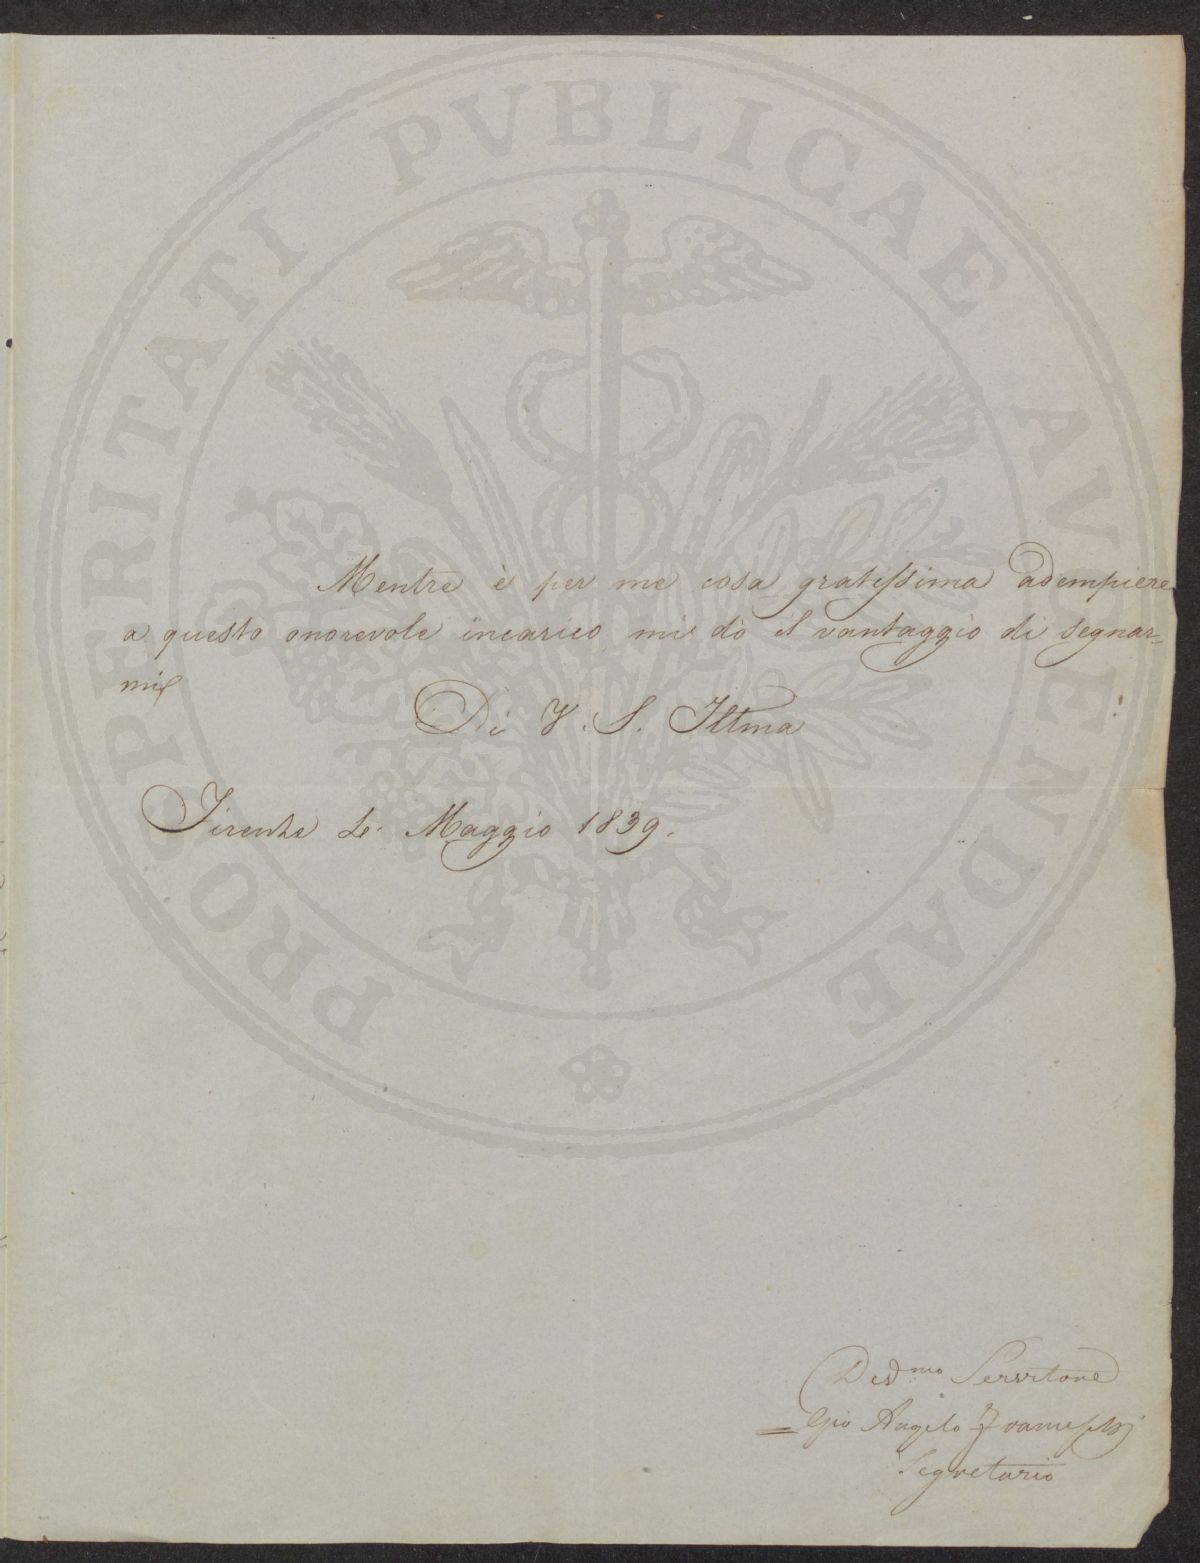 PROSPERITATI PVBLICAE AVGENDAE
Mentre è per me cosa gratissima adempiere
a questo onorevole incarico, mi dò il vantaggio di segnar=
mi
Di V. S. Illma
Firenze Maggio 1839.
Servitore
Gio Angelo Franceschi
Segretario